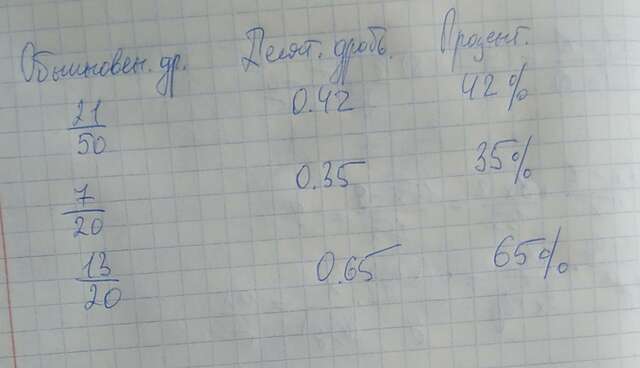 Обыкновен. др. Десят. дробь. Процент.
21/50 0.42 42%
7/20 0.35 35%
13/20 0.65 65%